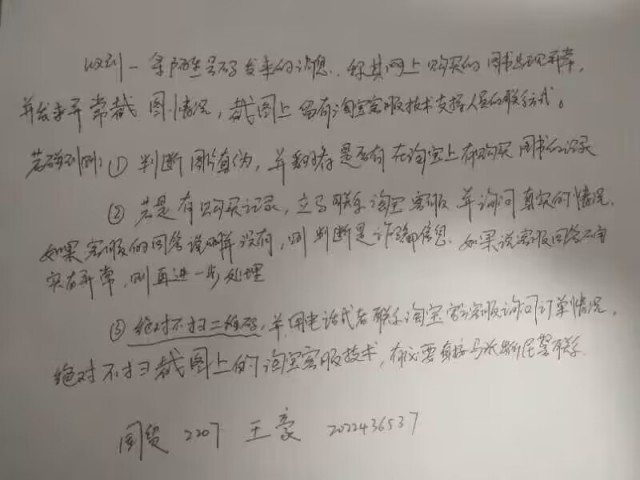 收到一条陌生号码发来的讯息，称其网上购买的图书出现异常，
并发来异常截图情况，截图上留有淘宝客服技术支撑人员的联系方式。
若碰到则：① 判断图片真伪，并翻看是否有在淘宝上有购买图书的记录
② 若是有购买记录，立马联系淘宝客服并询问真实的情况，
如果客服的回答误解没有，则判断是诈骗信息．如果说客服回答
实有异常，则再进一步处理
③ 绝对不扫二维码，并用电话或者联系淘宝官方客服询问订单情况，
绝对不扫截图上的淘宝客服技术，有必要直接与派出所民警联系
国贸 2207 王豪 2022436537